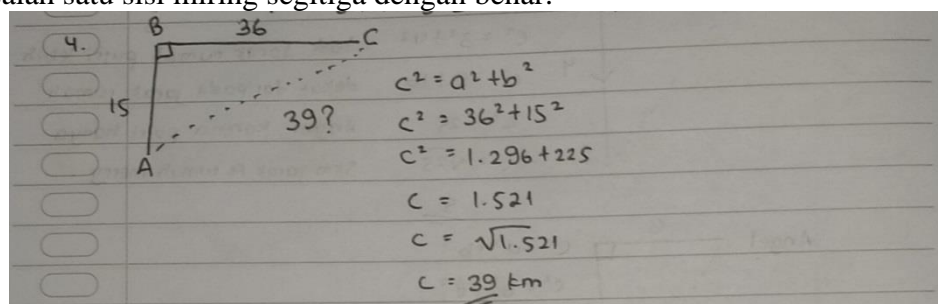 salah satu sisi miring segitiga dengan benar.
4.
B 36 C
15
39?
A
c² = a² + b²
c² = 36² + 15²
c² = 1.296 + 225
c = 1.521
c = √1.521
c = 39 km